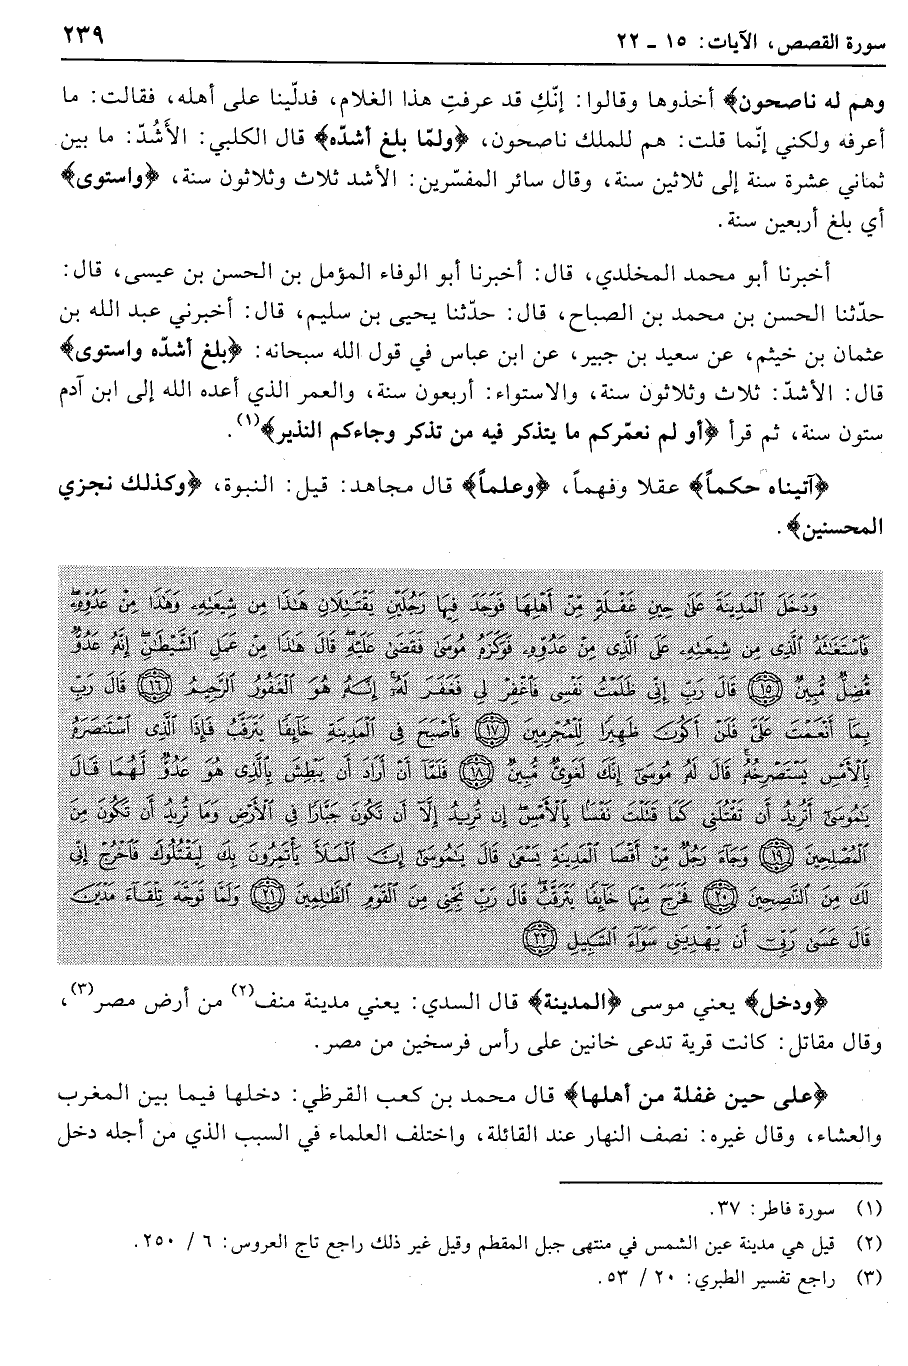 سورة القصص، الآيات: ١٥ ـ ٢٢ ٢٣٩
وهم له ناصحون﴾ أخذوها وقالوا: إنّكِ قد عرفتِ هذا الغلام، فدلّينا على أهله، فقالت: ما
أعرفه ولكني إنّما قلت: هم للملك ناصحون، ﴿ولمّا بلغ أشدّه﴾ قال الكلبي: الأَشُدّ: ما بين
ثماني عشرة سنة إلى ثلاثين سنة، وقال سائر المفسّرين: الأشد ثلاث وثلاثون سنة، ﴿واستوى﴾
أي بلغ أربعين سنة.
أخبرنا أبو محمد المخلدي، قال: أخبرنا أبو الوفاء المؤمل بن الحسن بن عيسى، قال:
حدّثنا الحسن بن محمد بن الصباح، قال: حدّثنا يحيى بن سليم، قال: أخبرني عبد الله بن
عثمان بن خيثم، عن سعيد بن جبير، عن ابن عباس في قول الله سبحانه: ﴿بلغ أشدّه واستوى﴾
قال: الأشدّ: ثلاث وثلاثون سنة، والاستواء: أربعون سنة، والعمر الذي أعده الله إلى ابن آدم
ستون سنة، ثم قرأ ﴿أو لم نعمّركم ما يتذكر فيه من تذكر وجاءكم النذير﴾(١).
﴿آتيناه حكماً﴾ عقلا وفهماً، ﴿وعلماً﴾ قال مجاهد: قيل: النبوة، ﴿وكذلك نجزي
المحسنين﴾.
وَدَخَلَ الْمَدِينَةَ عَلَى حِينِ غَفْلَةٍ مِّنْ أَهْلِهَا فَوَجَدَ فِيهَا رَجُلَيْنِ يَقْتَتِلَانِ هَٰذَا مِن شِيعَتِهِ وَهَٰذَا مِنْ عَدُوِّهِ
فَاسْتَغَاثَهُ الَّذِي مِن شِيعَتِهِ عَلَى الَّذِي مِنْ عَدُوِّهِ فَوَكَزَهُ مُوسَى فَقَضَى عَلَيْهِ قَالَ هَٰذَا مِنْ عَمَلِ الشَّيْطَانِ إِنَّهُ عَدُوٌّ
مُّضِلٌّ مُّبِينٌ ﴿١٥﴾ قَالَ رَبِّ إِنِّي ظَلَمْتُ نَفْسِي فَاغْفِرْ لِي فَغَفَرَ لَهُ إِنَّهُ هُوَ الْغَفُورُ الرَّحِيمُ ﴿١٦﴾ قَالَ رَبِّ
بِمَا أَنْعَمْتَ عَلَيَّ فَلَنْ أَكُونَ ظَهِيرًا لِّلْمُجْرِمِينَ ﴿١٧﴾ فَأَصْبَحَ فِي الْمَدِينَةِ خَائِفًا يَتَرَقَّبُ فَإِذَا الَّذِي اسْتَنصَرَهُ
بِالْأَمْسِ يَسْتَصْرِخُهُ قَالَ لَهُ مُوسَى إِنَّكَ لَغَوِيٌّ مُّبِينٌ ﴿١٨﴾ فَلَمَّا أَنْ أَرَادَ أَن يَبْطِشَ بِالَّذِي هُوَ عَدُوٌّ لَّهُمَا قَالَ
يَا مُوسَى أَتُرِيدُ أَن تَقْتُلَنِي كَمَا قَتَلْتَ نَفْسًا بِالْأَمْسِ إِن تُرِيدُ إِلَّا أَن تَكُونَ جَبَّارًا فِي الْأَرْضِ وَمَا تُرِيدُ أَن تَكُونَ مِنَ
الْمُصْلِحِينَ ﴿١٩﴾ وَجَاءَ رَجُلٌ مِّنْ أَقْصَا الْمَدِينَةِ يَسْعَى قَالَ يَا مُوسَى إِنَّ الْمَلَأَ يَأْتَمِرُونَ بِكَ لِيَقْتُلُوكَ فَاخْرُجْ إِنِّي
لَكَ مِنَ النَّاصِحِينَ ﴿٢٠﴾ فَخَرَجَ مِنْهَا خَائِفًا يَتَرَقَّبُ قَالَ رَبِّ نَجِّنِي مِنَ الْقَوْمِ الظَّالِمِينَ ﴿٢١﴾ وَلَمَّا تَوَجَّهَ تِلْقَاءَ مَدْيَنَ
قَالَ عَسَى رَبِّي أَن يَهْدِيَنِي سَوَاءَ السَّبِيلِ ﴿٢٢﴾
﴿ودخل﴾ يعني موسى ﴿المدينة﴾ قال السدي: يعني مدينة منف(٢) من أرض مصر(٣)،
وقال مقاتل: كانت قرية تدعى خانين على رأس فرسخين من مصر.
﴿على حين غفلة من أهلها﴾ قال محمد بن كعب القرظي: دخلها فيما بين المغرب
والعشاء، وقال غيره: نصف النهار عند القائلة، واختلف العلماء في السبب الذي من أجله دخل
(١) سورة فاطر: ٣٧.
(٢) قيل هي مدينة عين الشمس في منتهى جبل المقطم وقيل غير ذلك راجع تاج العروس: ٦ / ٢٥٠.
(٣) راجع تفسير الطبري: ٢٠ / ٥٣.